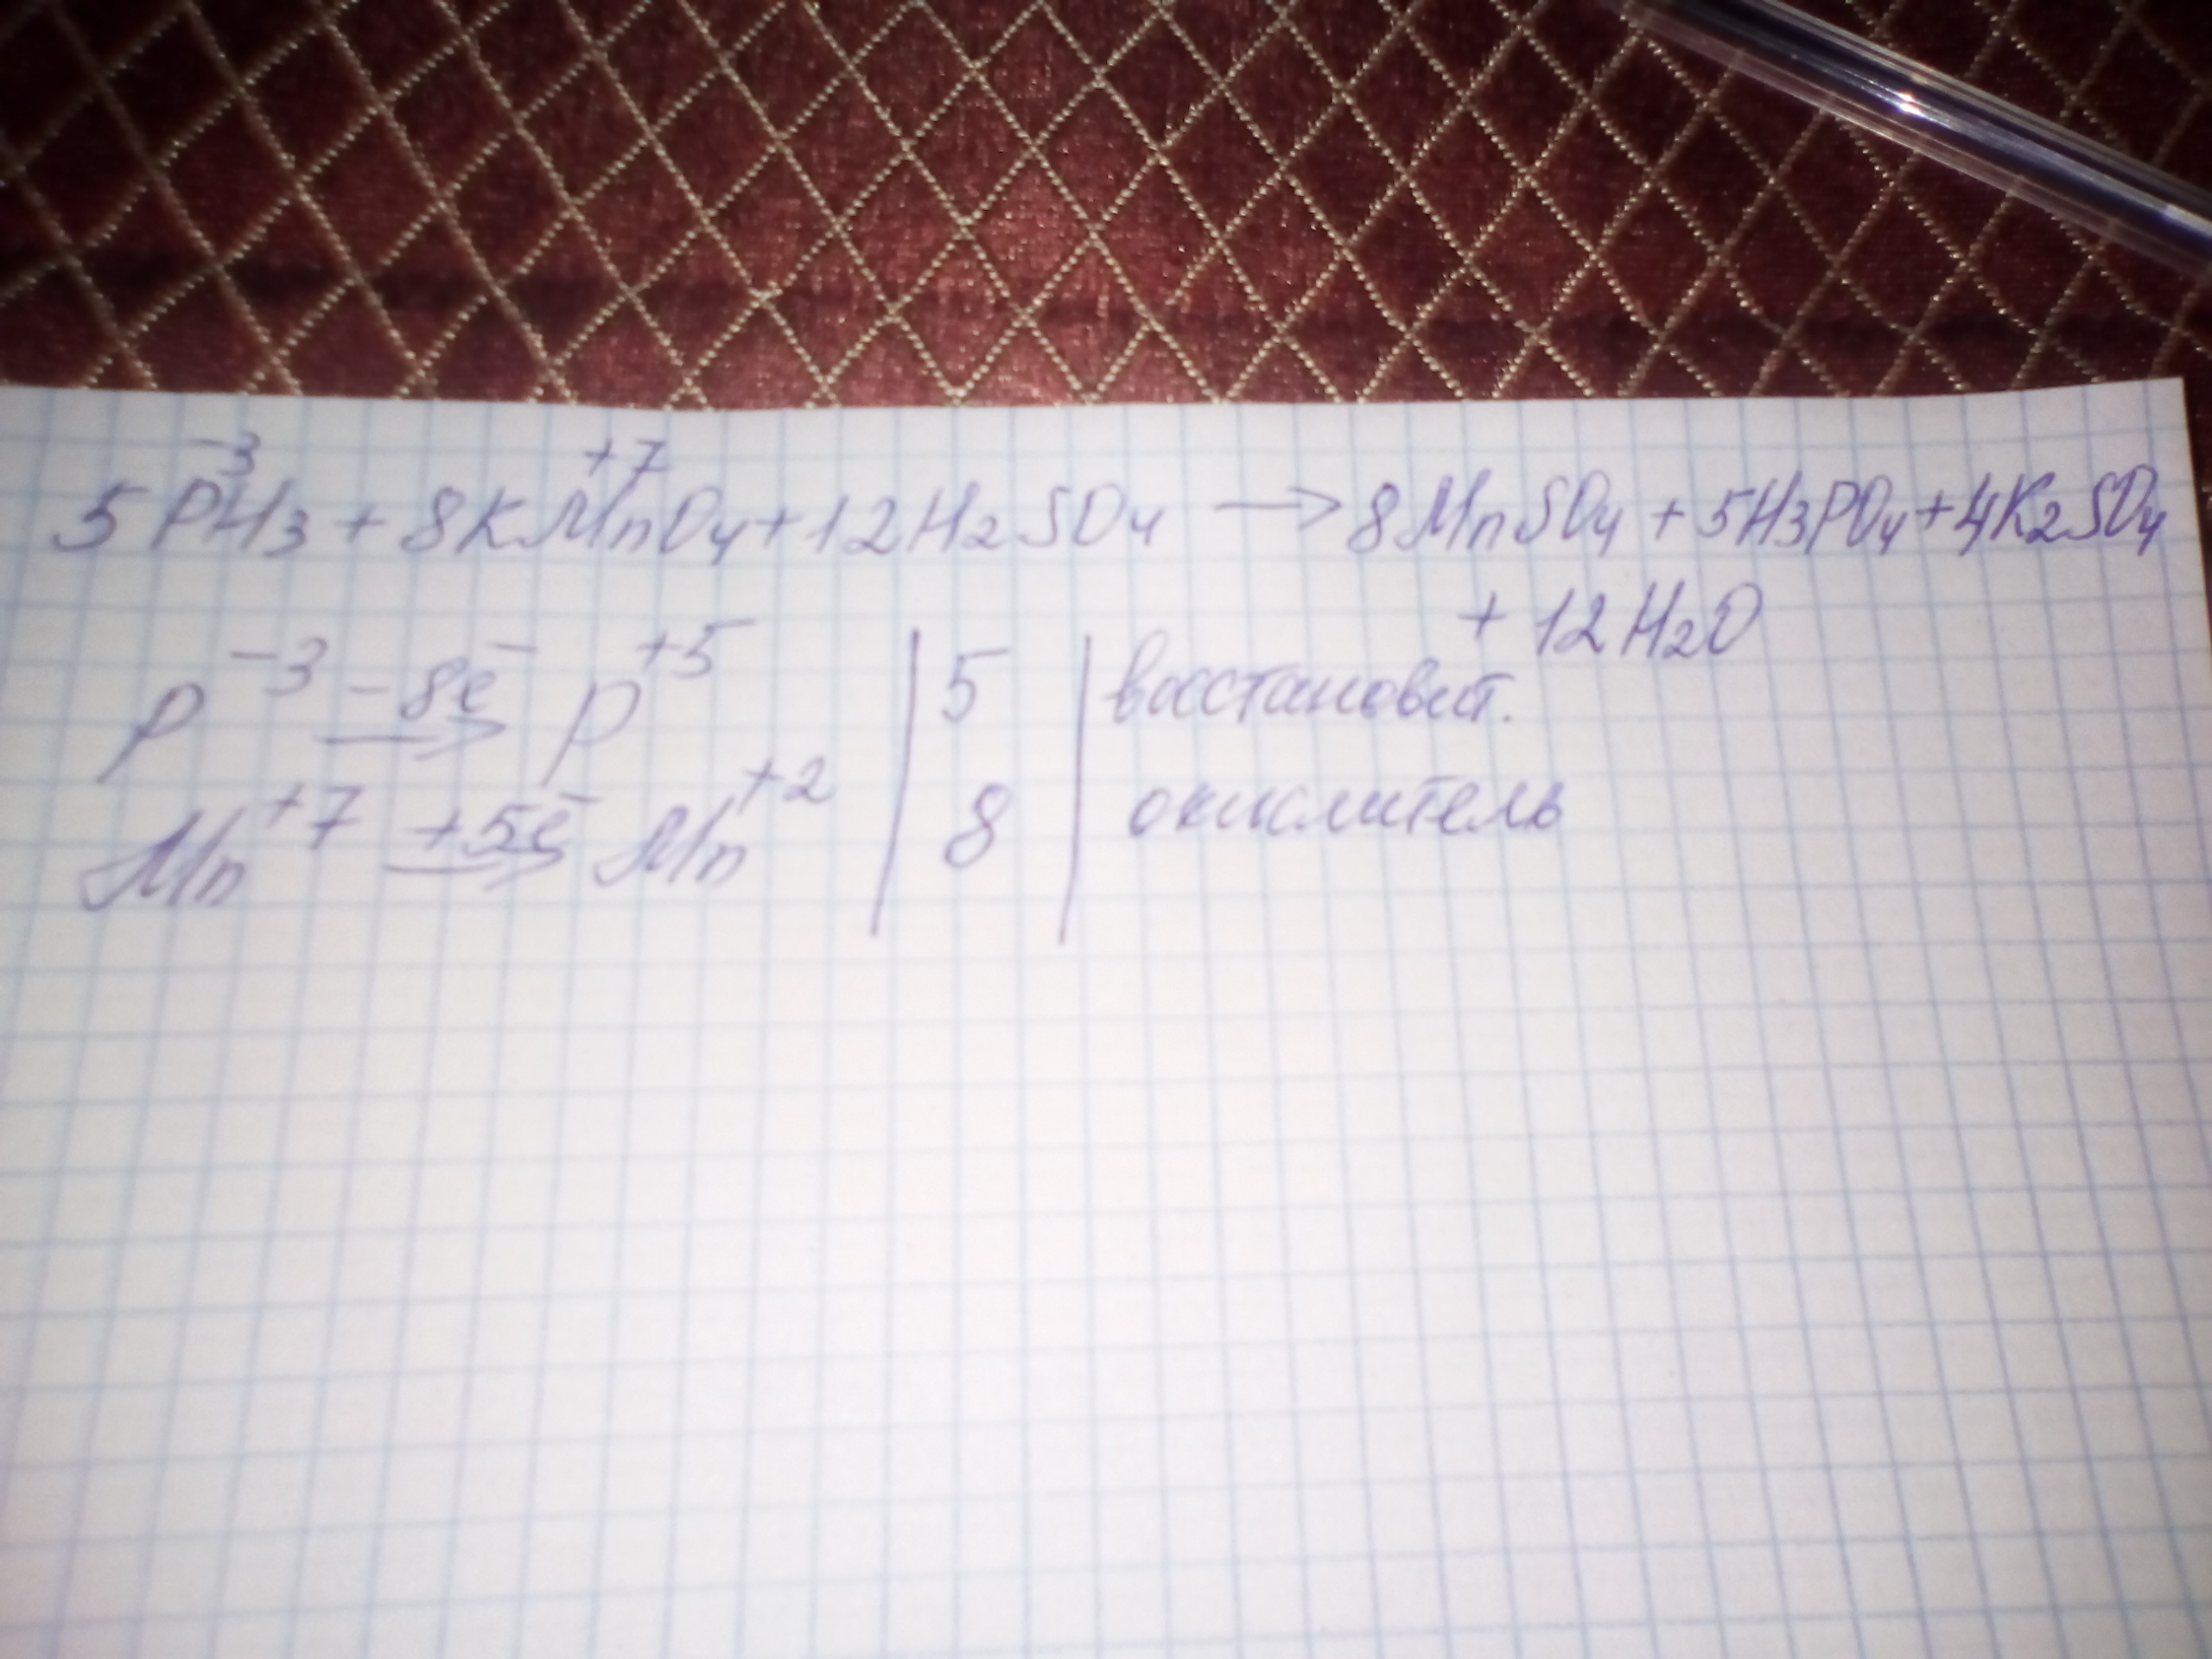 5P⁻³H₃ + 8KMn⁺⁷O₄ + 12H₂SO₄ → 8MnSO₄ + 5H₃PO₄ + 4K₂SO₄
+ 12H₂O
P⁻³ —−8e̅→ P⁺⁵ | 5 | восстановит.
Mn⁺⁷ —+5e̅→ Mn⁺² | 8 | окислитель